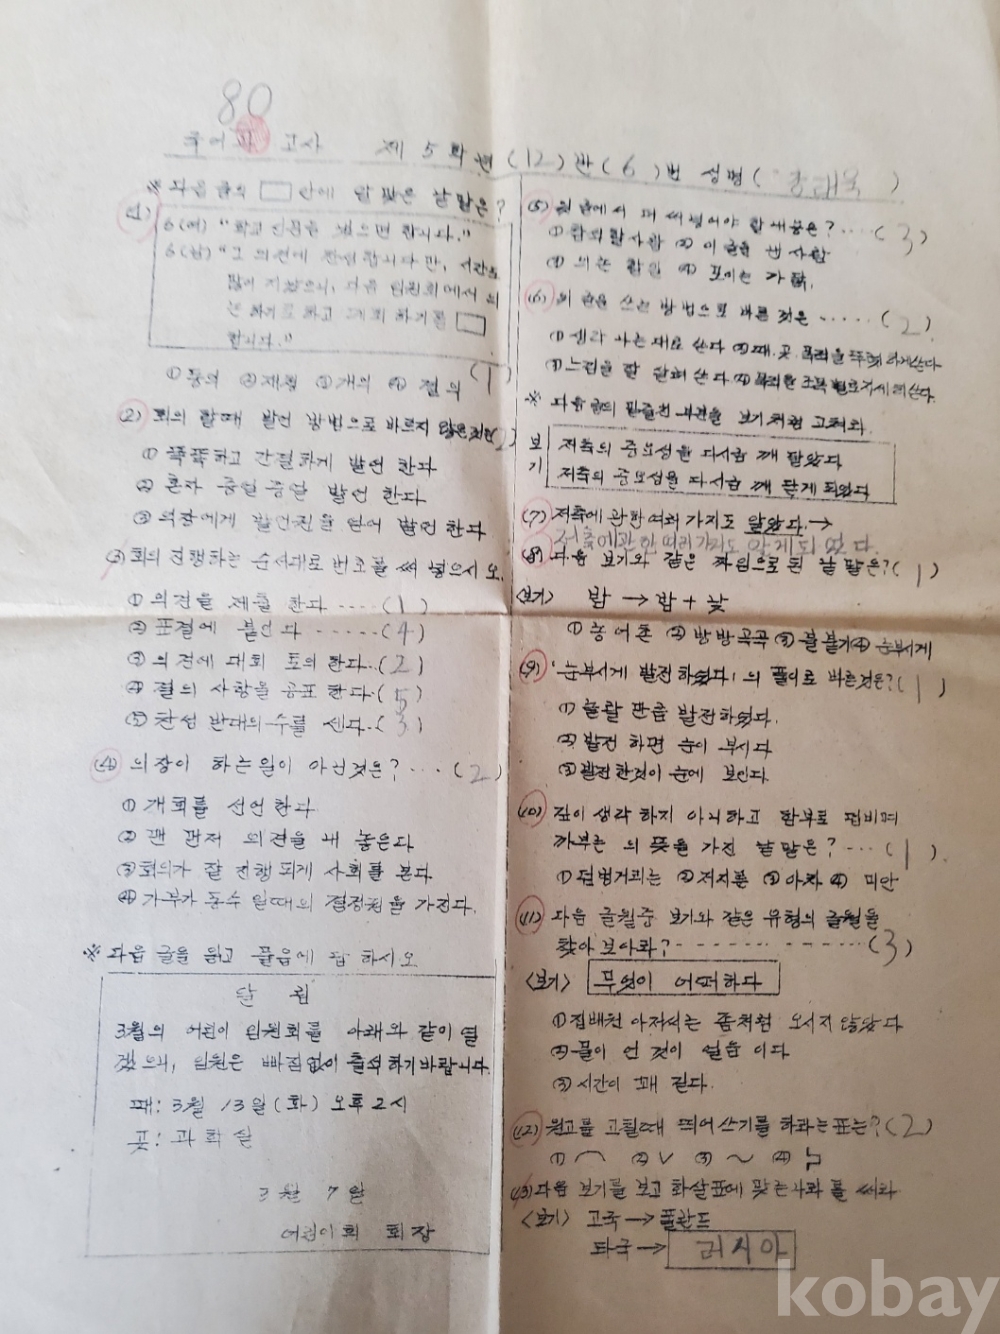 80
국어과 고사 제 5 학년 (12) 반 (6) 번 성명 (
※ 다음 글의 □ 안에 알맞은 낱말은?
(1)
6 (여) "학교 신문을 했으면 합니다."
6 (남) "그 의견에 찬성합니다만, 시간도
많이 지났으니, 다음 임원회에서 의
논 하기로 하고 폐회 하기를 □
합니다."
①동의 ②재청 ③개의 ④결의 (1)
(2) 회의 할때 발언 방법으로 바르지 않은것은 (2)
① 똑똑하고 간결하게 발언 한다
② 혼자 중얼 중얼 발언 한다
③ 의장에게 발언권을 얻어 발언 한다
(3) 회의 진행하는 순서대로 번호를 써 넣으시오.
① 의견을 제출 한다 ····(1)
② 표결에 붙인다 ······(4)
③ 의견에 대해 토의 한다··(2)
④ 결의 사항을 공표 한다·(5)
⑤ 찬성 반대의 수를 센다·(3)
(4) 의장이 하는일이 아닌것은? ···(2)
① 개회를 선언 한다
② 맨 먼저 의견을 내 놓는다
③ 회의가 잘 진행 되게 사회를 본다
④ 가부가 동수 일때의 결정권을 가진다.
※ 다음 글을 읽고 물음에 답 하시오
알 림
3월의 어린이 임원회를 아래와 같이 열
겠으니, 임원은 빠짐없이 출석하기바랍니다.
때: 3월 13일 (화) 오후 2시
곳: 과학실
3월 7일
어린이회 회장
(5) 윗 글에서 더 써넣어야 할 내용은? ···(3)
① 참석할사람 ② 이 글을 쓴 사람
③ 의논 할일 ④ 모이는 까닭.
(6) 위 글을 쓰는 방법으로 바른 것은 ·····(2)
①생각 나는 대로 쓴다 ②때. 곳. 목적을 뚜렷하게쓴다
③느낌을 잘 살려 쓴다 ④
※ 다음 글의 밑줄친 부분을 보기처럼 고쳐라.
보기
저축의 중요성을 다시금 깨 달았다
저축의 중요성을 다시금 깨 닫게 되었다
(7) 저축에 관한 여러 가지도 알았다. →
저축에 관한 여러가지도 알게 되었다.
(8) 다음 보기와 같은 짜임으로 된 낱말은? (1)
<보기> 밤 → 밤 + 낮
① 농어촌 ② 방방곡곡 ③ 불불기 ④ 눈부시게
(9) '눈부시게 발전하였다'의 풀이로 바른것은? (1)
① 놀랄 만큼 발전하였다.
② 발전 하면 눈이 부시다
③ 발전한것이 눈에 보인다
(10) 깊이 생각 하지 아니하고 함부로 덤비며
까부는 의 뜻을 가진 낱말은? ···(1)
① 덤벙거리는 ② 저지른 ③ 아차 ④ 미안
(11) 다음 글월중 보기와 같은 유형의 글월을
찾아 보아라? - - - - - - - - - (3)
<보기> 무엇이 어떠하다
① 집배원 아저씨는 좀처럼 오시지 않았다
② 물이 언 것이 얼음 이다
③ 시간이 꽤 길다.
(12) 원고를 고칠때 띄어 쓰기를 하라는 표는? (2)
① ⌒ ② ∨ ③ ～ ④
(13) 다음 보기를 보고 화살표에 맞는 나라 를 써라
<보기> 고국 → 폴란드
타국 → 러시아
kobay